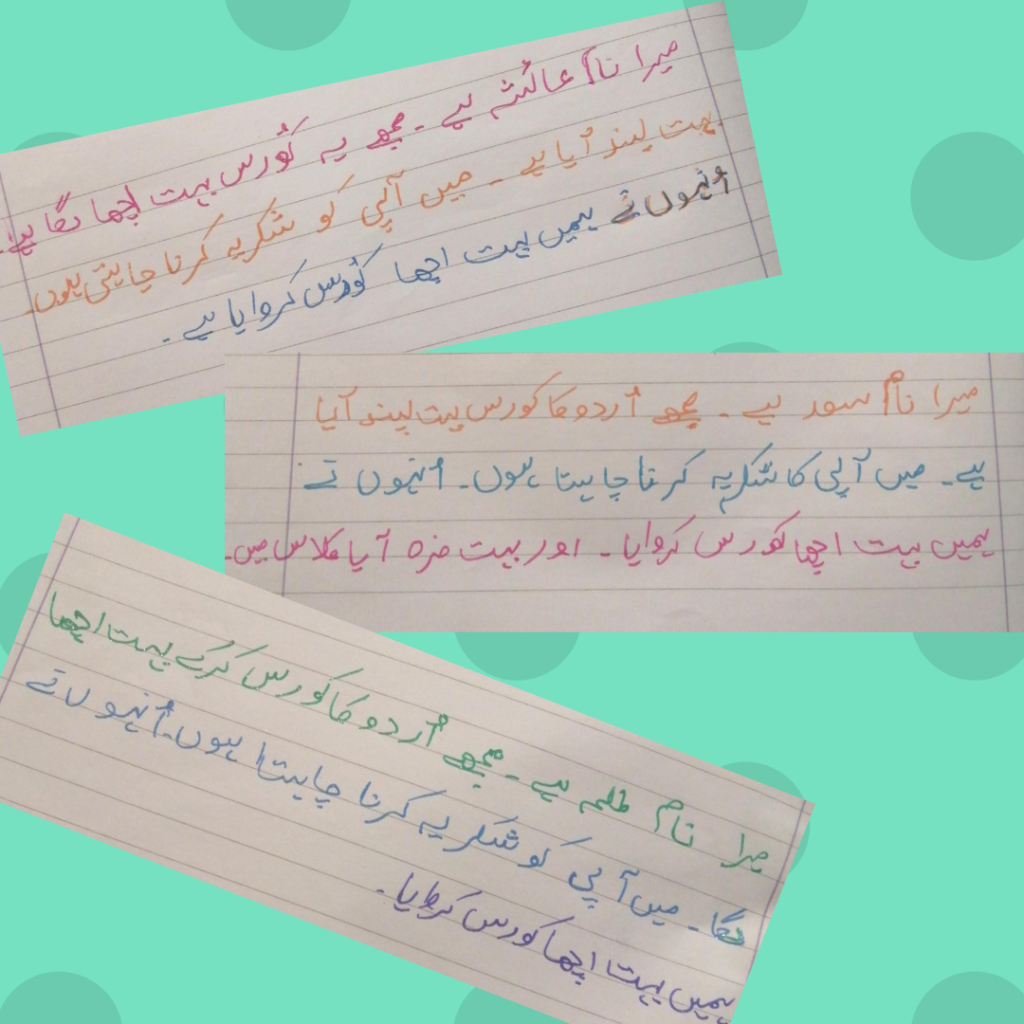 میرا نام عائشہ ہے ۔ مجھے یہ کُورس بہت اچھا لگا ہے۔
بہت پسند آیا ہے ۔ میں آپی کو شکریہ کرنا چاہتی ہوں۔
اُنہوں نے ہمیں بہت اچھا کُورس کروایا ہے ۔
میرا نام سعد ہے ۔ مجھے اُردو کا کورس بہت پسند آیا
ہے ۔ میں آپی کا شکریہ کرنا چاہتا ہوں۔ اُنہوں نے
ہمیں بہت اچھا کورس کروایا ۔ اور بہت مزہ آیا کلاس میں۔
میرا نام طلحہ ہے ۔ مجھے اُردو کا کورس کرکے بہت اچھا
لگا ۔ میں آپی کو شکریہ کرنا چاہتا ہوں۔ اُنہوں نے
ہمیں بہت اچھا کورس کروایا ۔